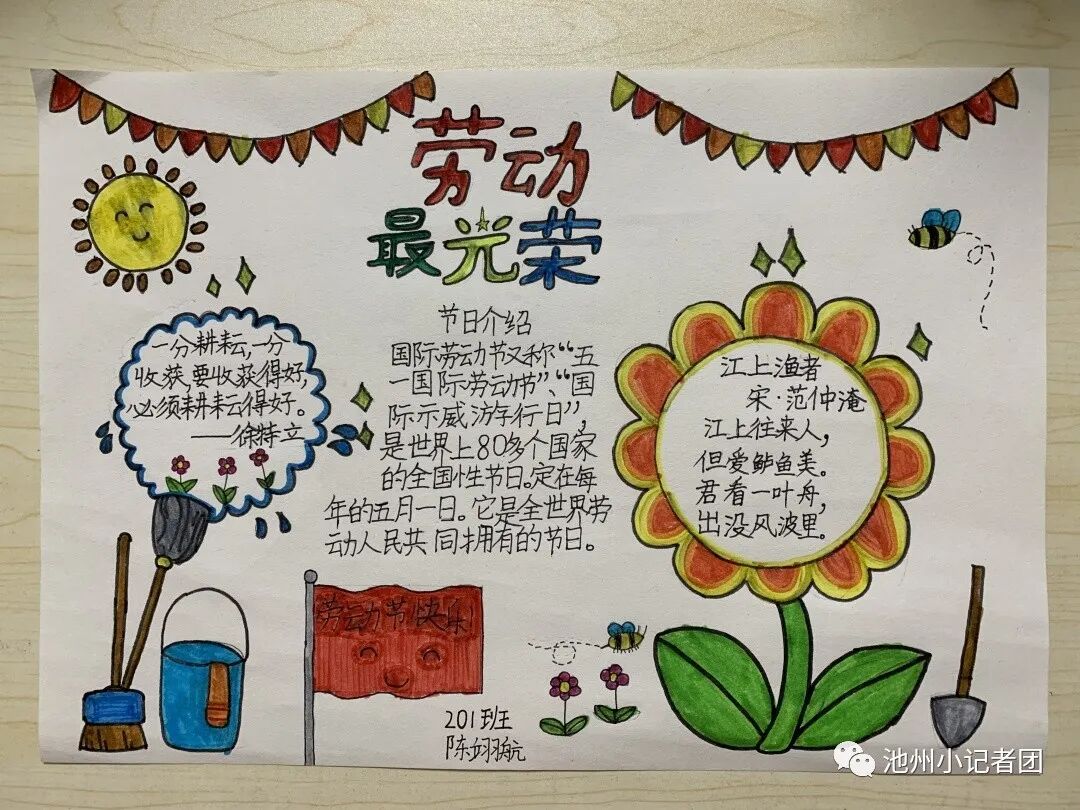 劳动
最光荣
一分耕耘,一分
收获,要收获得好,
必须耕耘得好。
——徐特立
节日介绍
国际劳动节又称“五
一国际劳动节”、“国
际示威游行日”,
是世界上80多个国家
的全国性节日。定在每
年的五月一日。它是全世界劳
动人民共同拥有的节日。
江上渔者
宋·范仲淹
江上往来人,
但爱鲈鱼美。
君看一叶舟,
出没风波里。
劳动节快乐
201班
陈翊航
池州小记者团